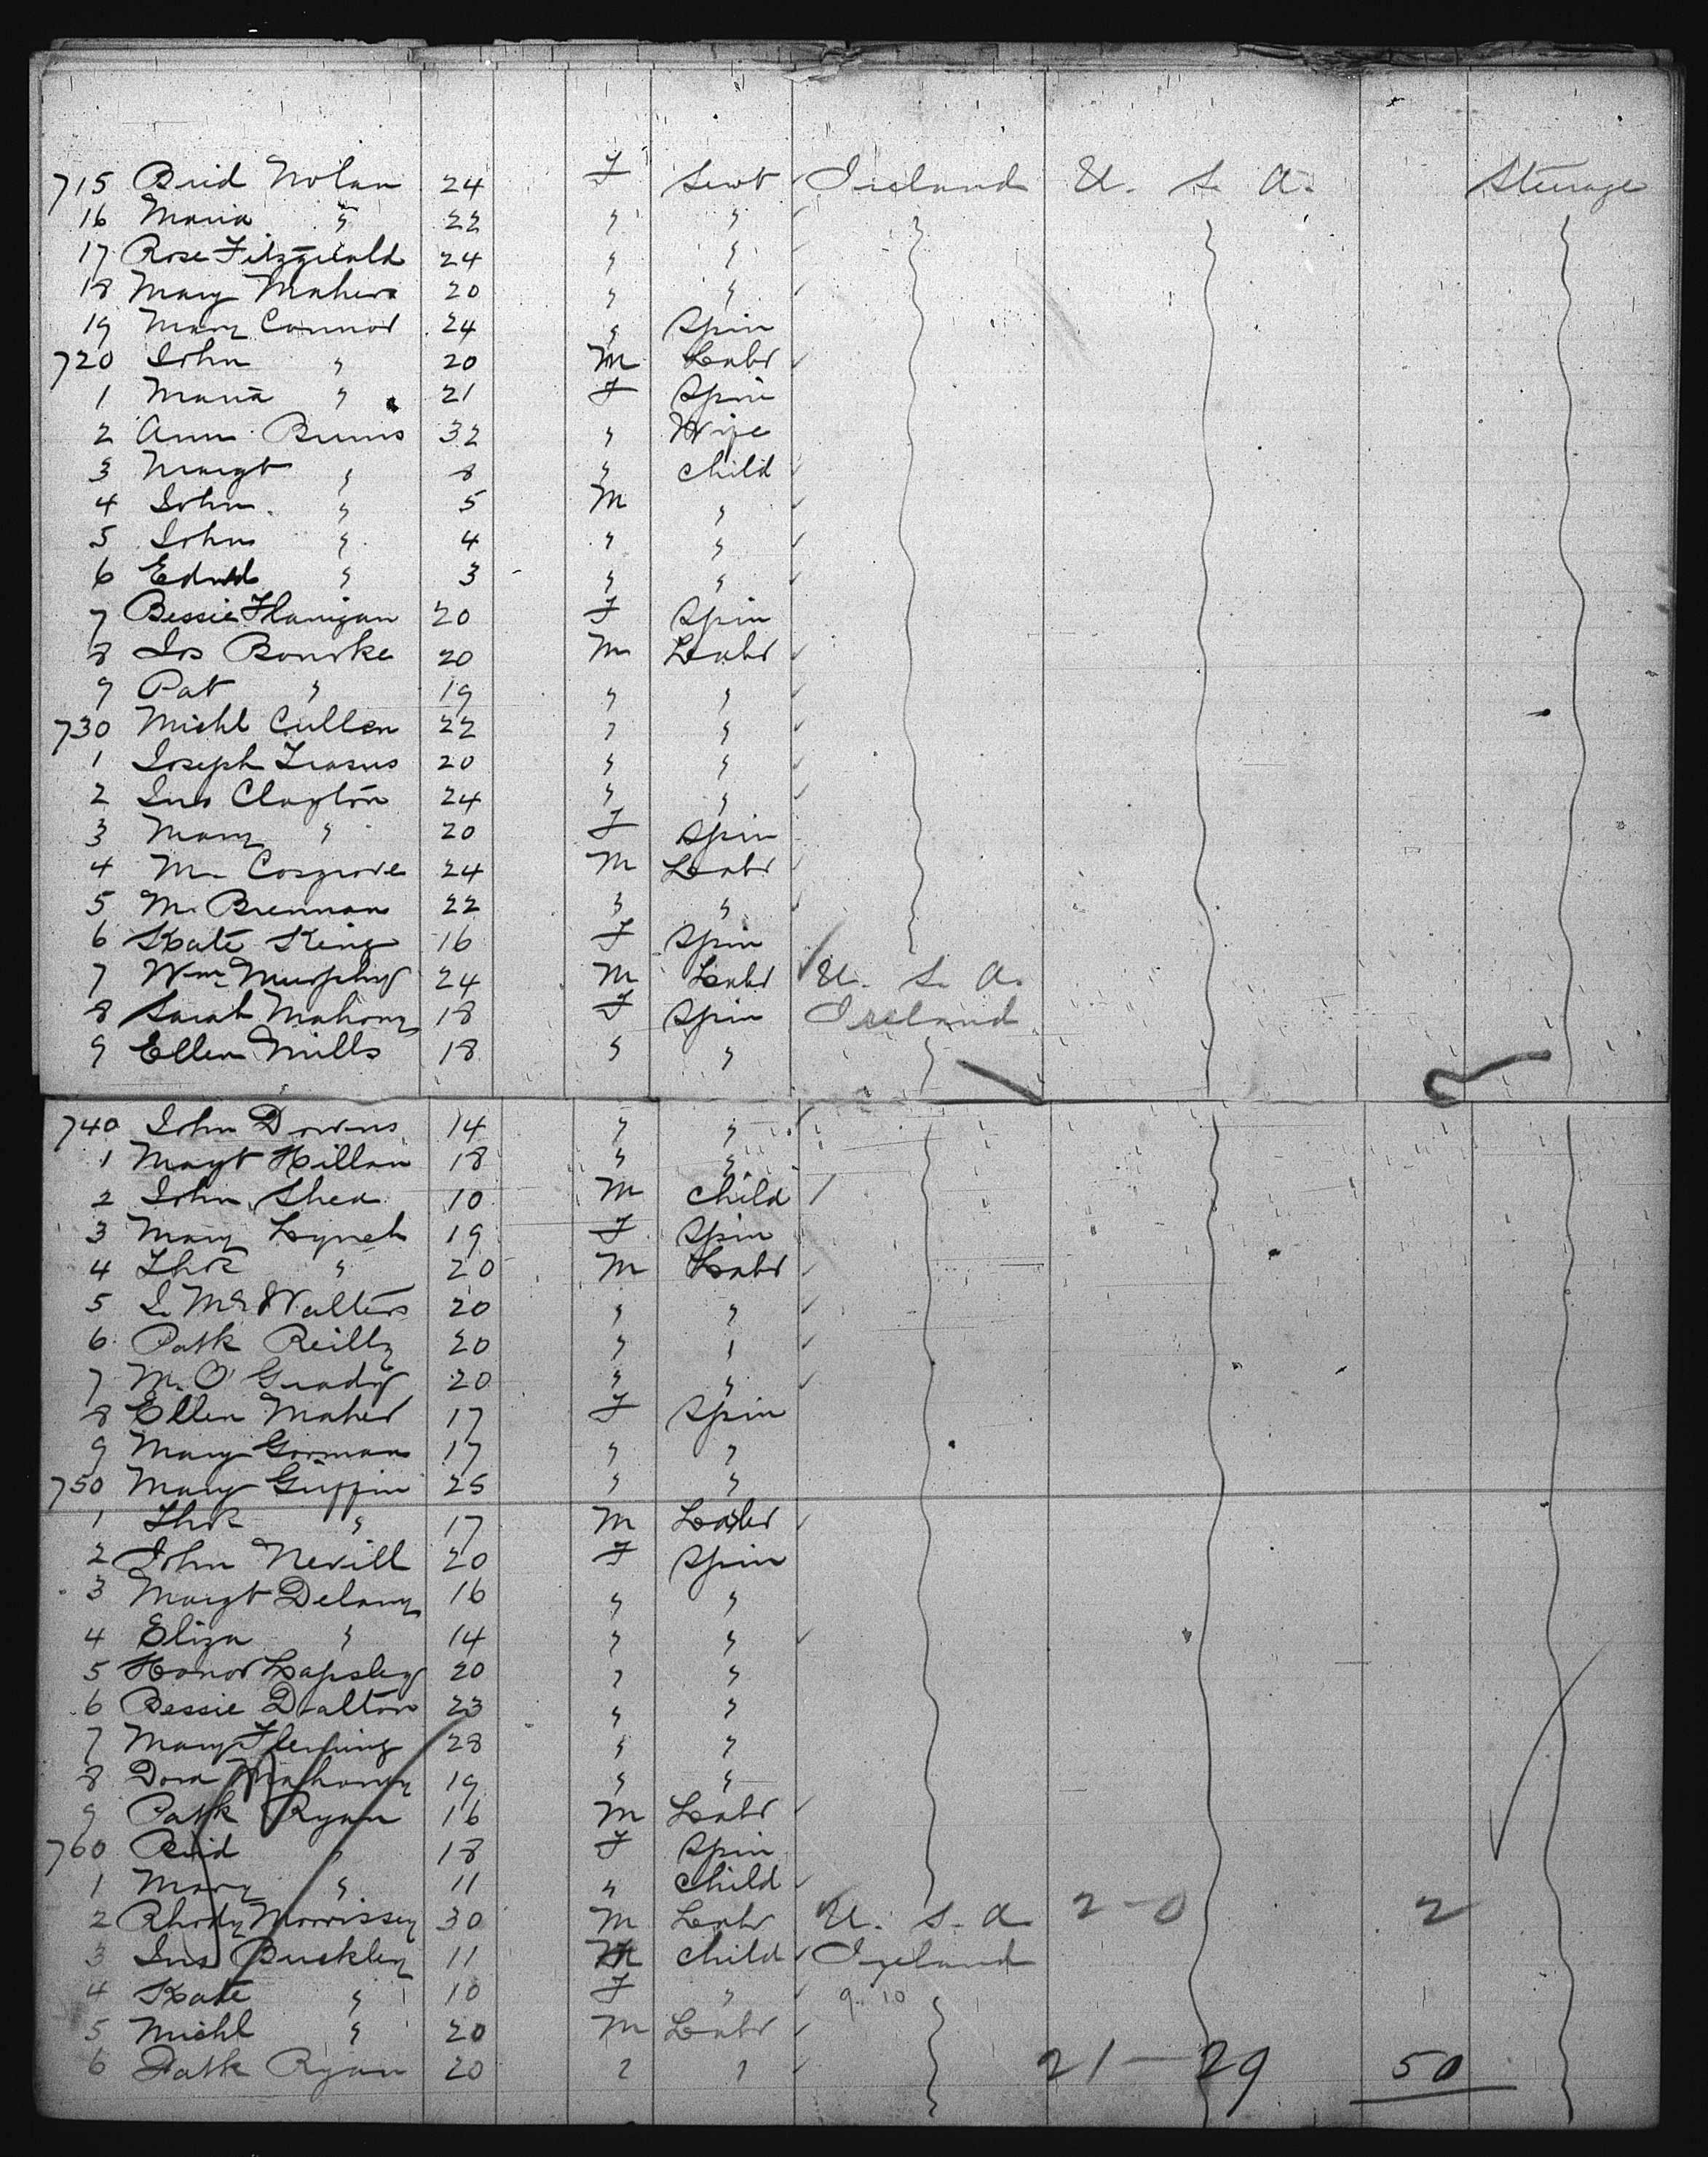 715 Brid Nolan 24 F Servt Ireland U. S. A. Steerage
16 Maria " 22 " "
17 Rose Fitzgerald 24 " "
18 Mary Mahera 20 " "
19 Mary Connor 24 " Spin
720 John " 20 M Labr
1 Maria " 21 F Spin
2 Ann Burns 32 " Wife
3 Margt " 8 " child
4 John " 5 M "
5 John " 4 " "
6 Edwd " 3 " "
7 Bessie Flanigan 20 F Spin
8 Jos Bourke 20 M Labr
9 Pat " 19 " "
730 Michl Cullen 22 " "
1 Joseph 20 " "
2 Jno Clayton 24 " "
3 Mary " 20 F Spin
4 M Cosgrove 24 M Labr
5 M Brennan 22 " "
6 Kate King 16 F Spin
7 Wm Murphy 24 M Labr U. S. A.
8 Sarah Mahony 18 F Spin Ireland
9 Ellen Mills 18 " "
740 John Downs 14 " "
1 Magt Killan 18 " "
2 John Shea 10 M child
3 Mary Lynch 19 F Spin
4 Thos " 20 M Labr
5 J. Mc Walters 20 " "
6 Patk Reilly 20 " "
7 M. O'Grady 20 " "
8 Ellen Maher 17 F Spin
9 Mary Gorman 17 " "
750 Mary Griffin 25 " "
1 Thos " 17 M Labr
2 John Nevill 20 F Spin
3 Margt Delany 16 " "
4 Eliza " 14 " "
5 Honor Lapsley 20 " "
6 Bessie Dalton 23 " "
7 Mary Fleming 28 " "
8 Dora Mahony 19 " "
9 Patk Ryan 16 M Labr
760 Brid " 18 F Spin
1 Mary " 11 " child
2 Rhody Morrissey 30 M Labr U. S. A 2-0 2
3 Jno Buckley 11 M child Ireland
4 Kate " 10 F " 9. 10
5 Michl " 20 M Labr
6 Patk Ryan 20 " " 21-29 50